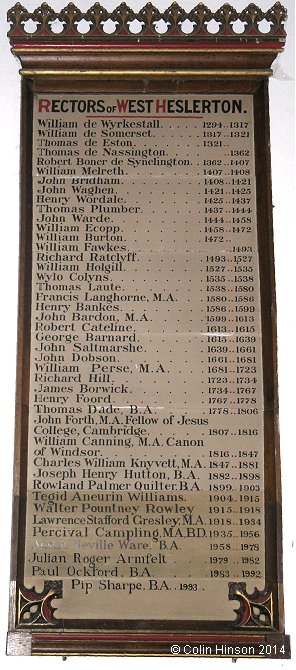 RECTORS OF WEST HESLERTON.
William de Wyrkestall. . . . . . 1294..1317
William de Somerset. . . . . . . 1317..1321
Thomas de Eston. . . . . . . . . 1321..
Thomas de Nassington. . . . . . . ..1362
Robert Boner de Synelington. . 1362..1407
William Melreth. . . . . . . . . 1407..1408
John Bridham. . . . . . . . . . 1408..1421
John Waghen. . . . . . . . . . 1421..1425
Henry Wordale. . . . . . . . . 1425..1437
Thomas Plumber. . . . . . . . 1437..1444
John Warde. . . . . . . . . . 1444..1458
William Ecopp. . . . . . . . . 1458..1472
William Burton. . . . . . . . . 1472..
William Fawkes. . . . . . . . . ..1493
Richard Ratclyff. . . . . . . . 1493..1527
William Holgill. . . . . . . . . 1527..1535
Wylo Colyns. . . . . . . . . . 1535..1538
Thomas Laute. . . . . . . . . 1538..1580
Francis Langhorne, M.A. . . . . 1580..1586
Henry Bankes. . . . . . . . . 1586..1599
John Bardon, M.A. . . . . . . 1599..1613
Robert Cateline. . . . . . . . 1613..1615
George Barnard. . . . . . . . 1615..1639
John Saltmarshe. . . . . . . . 1639..1661
John Dobson. . . . . . . . . . 1661..1681
William Perse, M.A. . . . . . . 1681..1723
Richard Hill. . . . . . . . . . 1723..1734
James Borwick. . . . . . . . . 1734..1767
Henry Foord. . . . . . . . . . 1767..1778
Thomas Dade, B.A. . . . . . . 1778..1806
John Forth, M.A. Fellow of Jesus
College, Cambridge. . . . . . . 1807..1816
William Canning, M.A. Canon
of Windsor. . . . . . . . . . . 1816..1847
Charles William Knyvett, M.A. 1847..1881
Joseph Henry Hutton, B.A. . 1882..1898
Rowland Palmer Quilter. B.A. 1899..1903
Tegid Aneurin Williams. . . . . 1904..1915
Walter Pountney Rowley . . 1915..1918
Lawrence Stafford Gresley, M.A. 1918..1934
Percival Campling, M.A, B.D. 1935..1956
Neville Ware, B.A. 1958..1978
Julian Roger Armfelt 1979..1982
Paul Ockford, B.A. 1983..1992
Pip Sharpe. B.A. .. 1993.
© Colin Hinson 2014